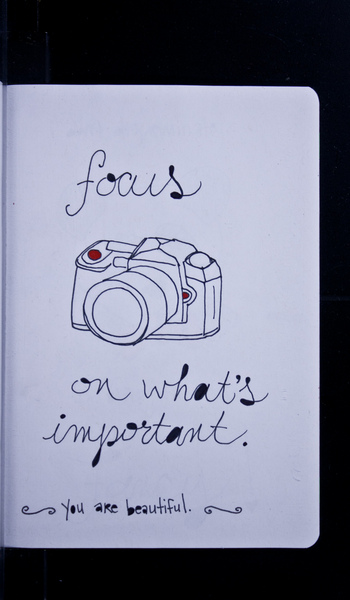 focus
on what's
important.
you are beautiful.